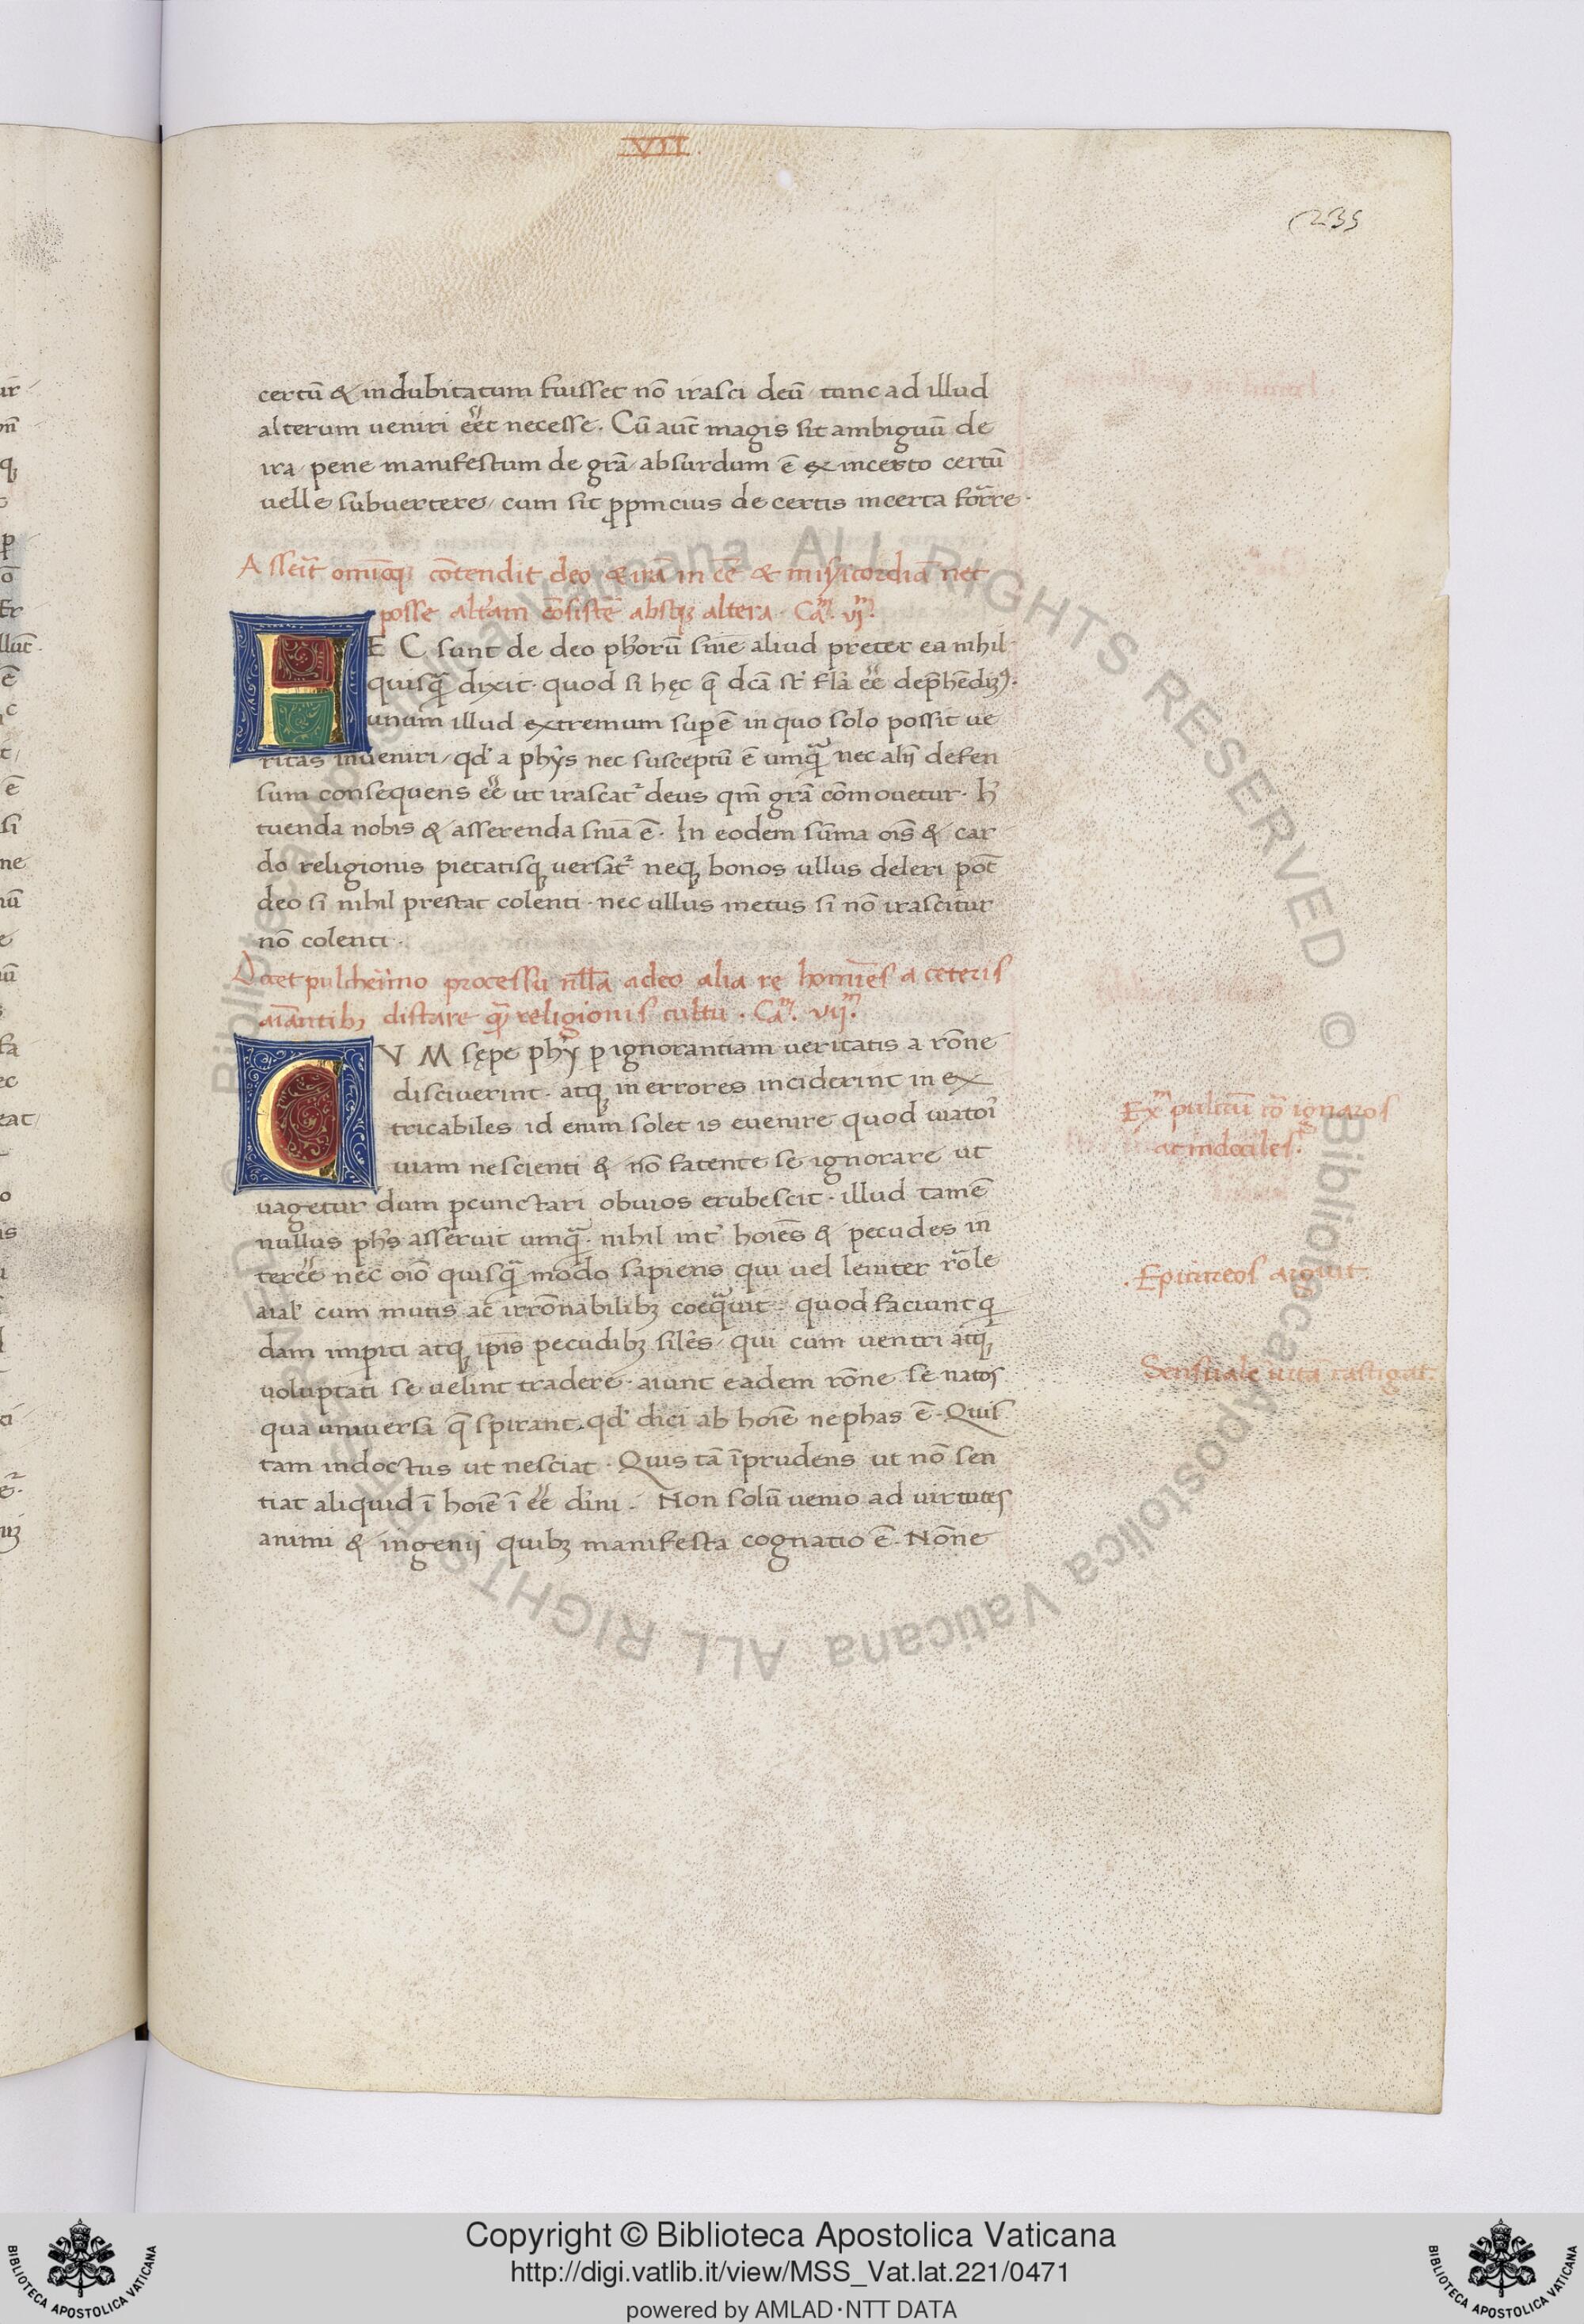 VII
235
certū & indubitatum fuisset nō irasci deū tunc ad illud
alterum ueniri eēt necesse. Cū aut̄ magis sit ambiguū de
ira pene manifestum de grā absurdum ē ex incerto certū
uelle subuertere cum sit ꝓpincius de certis incerta
Asseit cōtendit deo & irā in & misicordiā nec
posse altam cōsiste absqꝫ altera. Cam. vjm.
E C sunt de deo phorū snie aliud preter ea nihil
quisꝗ̄ dixit quod si hęc q̄ dcā st flā eē
unum illud extremum suꝑ ē in quo solo possit ue
ritas inueniri qd a phys nec susceptū ē umꝗ̄ nec alij defen
sum consequens eē ut irascat deus qm̄ grā cōmouetur. H
tuenda nobis & asserenda snia ē. In eodem sūma ois & car
do religionis pietatisqꝫ uersat neqꝫ bonos ullus deleri pōt
deo si nihil prestat colenti nec ullus metus si nō irascitur
nō colenti.
Docet pulcherimo processu nlla adeo alia re homiēs a ceteris
aiātibꝫ distare ꝗ̄ religionis cultu. Cam. vijm.
C V M sępe phy ꝑ ignorantiam ueritatis a rōne
disciuerint. atqꝫ in errores inciderint in ex
tricabiles id enim solet is euenire quod uiatori
uiam nescienti & nō fatente se ignorare ut
uagetur dum ꝑcunctari obuios erubescit. illud tamē
nullus phs asseruit umꝗ̄. nihil int hoiēs & pecudes in
tereē nec oīo quisꝗ̄ modo sapiens qui uel leuiter role
aial cum mutis ac irrōnabilibꝫ coequit quod faciunt q
dam impiti atqꝫ ipis pecudibꝫ silēs qui cum uentri atqꝫ
uoluptati se uelint tradere. aiunt eadem rōne se natos
qua uniuersa q̄ spirant. qd dici ab hoiē nephas ē. Quis
tam indoctus ut nesciat. Quis tā īprudens ut nō sen
tiat aliquid ī hoiē ī eē diui. Non solū uenio ad uirtutes
animi & ingenij quibꝫ manifesta cognatio ē. Nōne
Exm pulcrū cō ignaros
ac indociles.
. Epicureos arguit.
Sensualē uitā castigat.
Copyright © Biblioteca Apostolica Vaticana
http://digi.vatlib.it/view/MSS_Vat.lat.221/0471
powered by AMLAD·NTT DATA
BIBLIOTECA APOSTOLICA VATICANA
BIBLIOTECA APOSTOLICA VATICANA
© Biblioteca Apostolica Vaticana ALL RIGHTS RESERVED
© Biblioteca Apostolica Vaticana ALL RIGHTS RESERVED